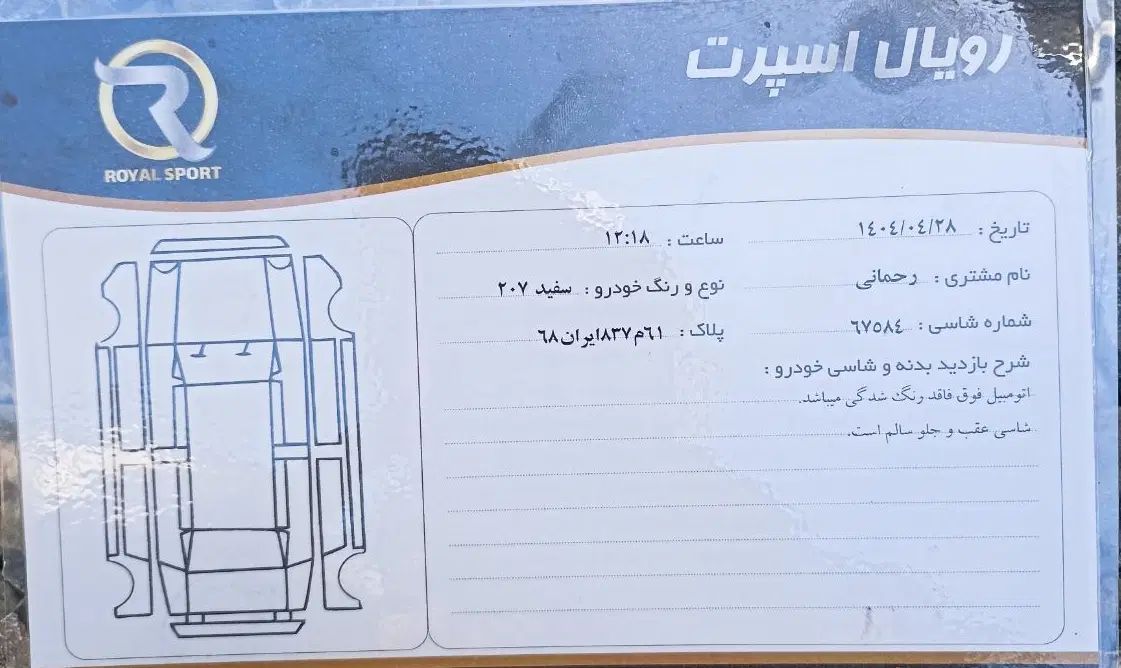 رویال اسپرت
ROYAL SPORT
تاریخ : ١٤٠٤/٠٤/٢٨
ساعت : ١٢:١٨
نام مشتری : رحمانی
نوع و رنگ خودرو : سفید ٢٠٧
شماره شاسی : ٦٧٥٨٤
پلاک : ٦١م٨٣٧ایران٦٨
شرح بازدید بدنه و شاسی خودرو :
اتومبیل فوق فاقد رنگ شدگی میباشد.
شاسی عقب و جلو سالم است.